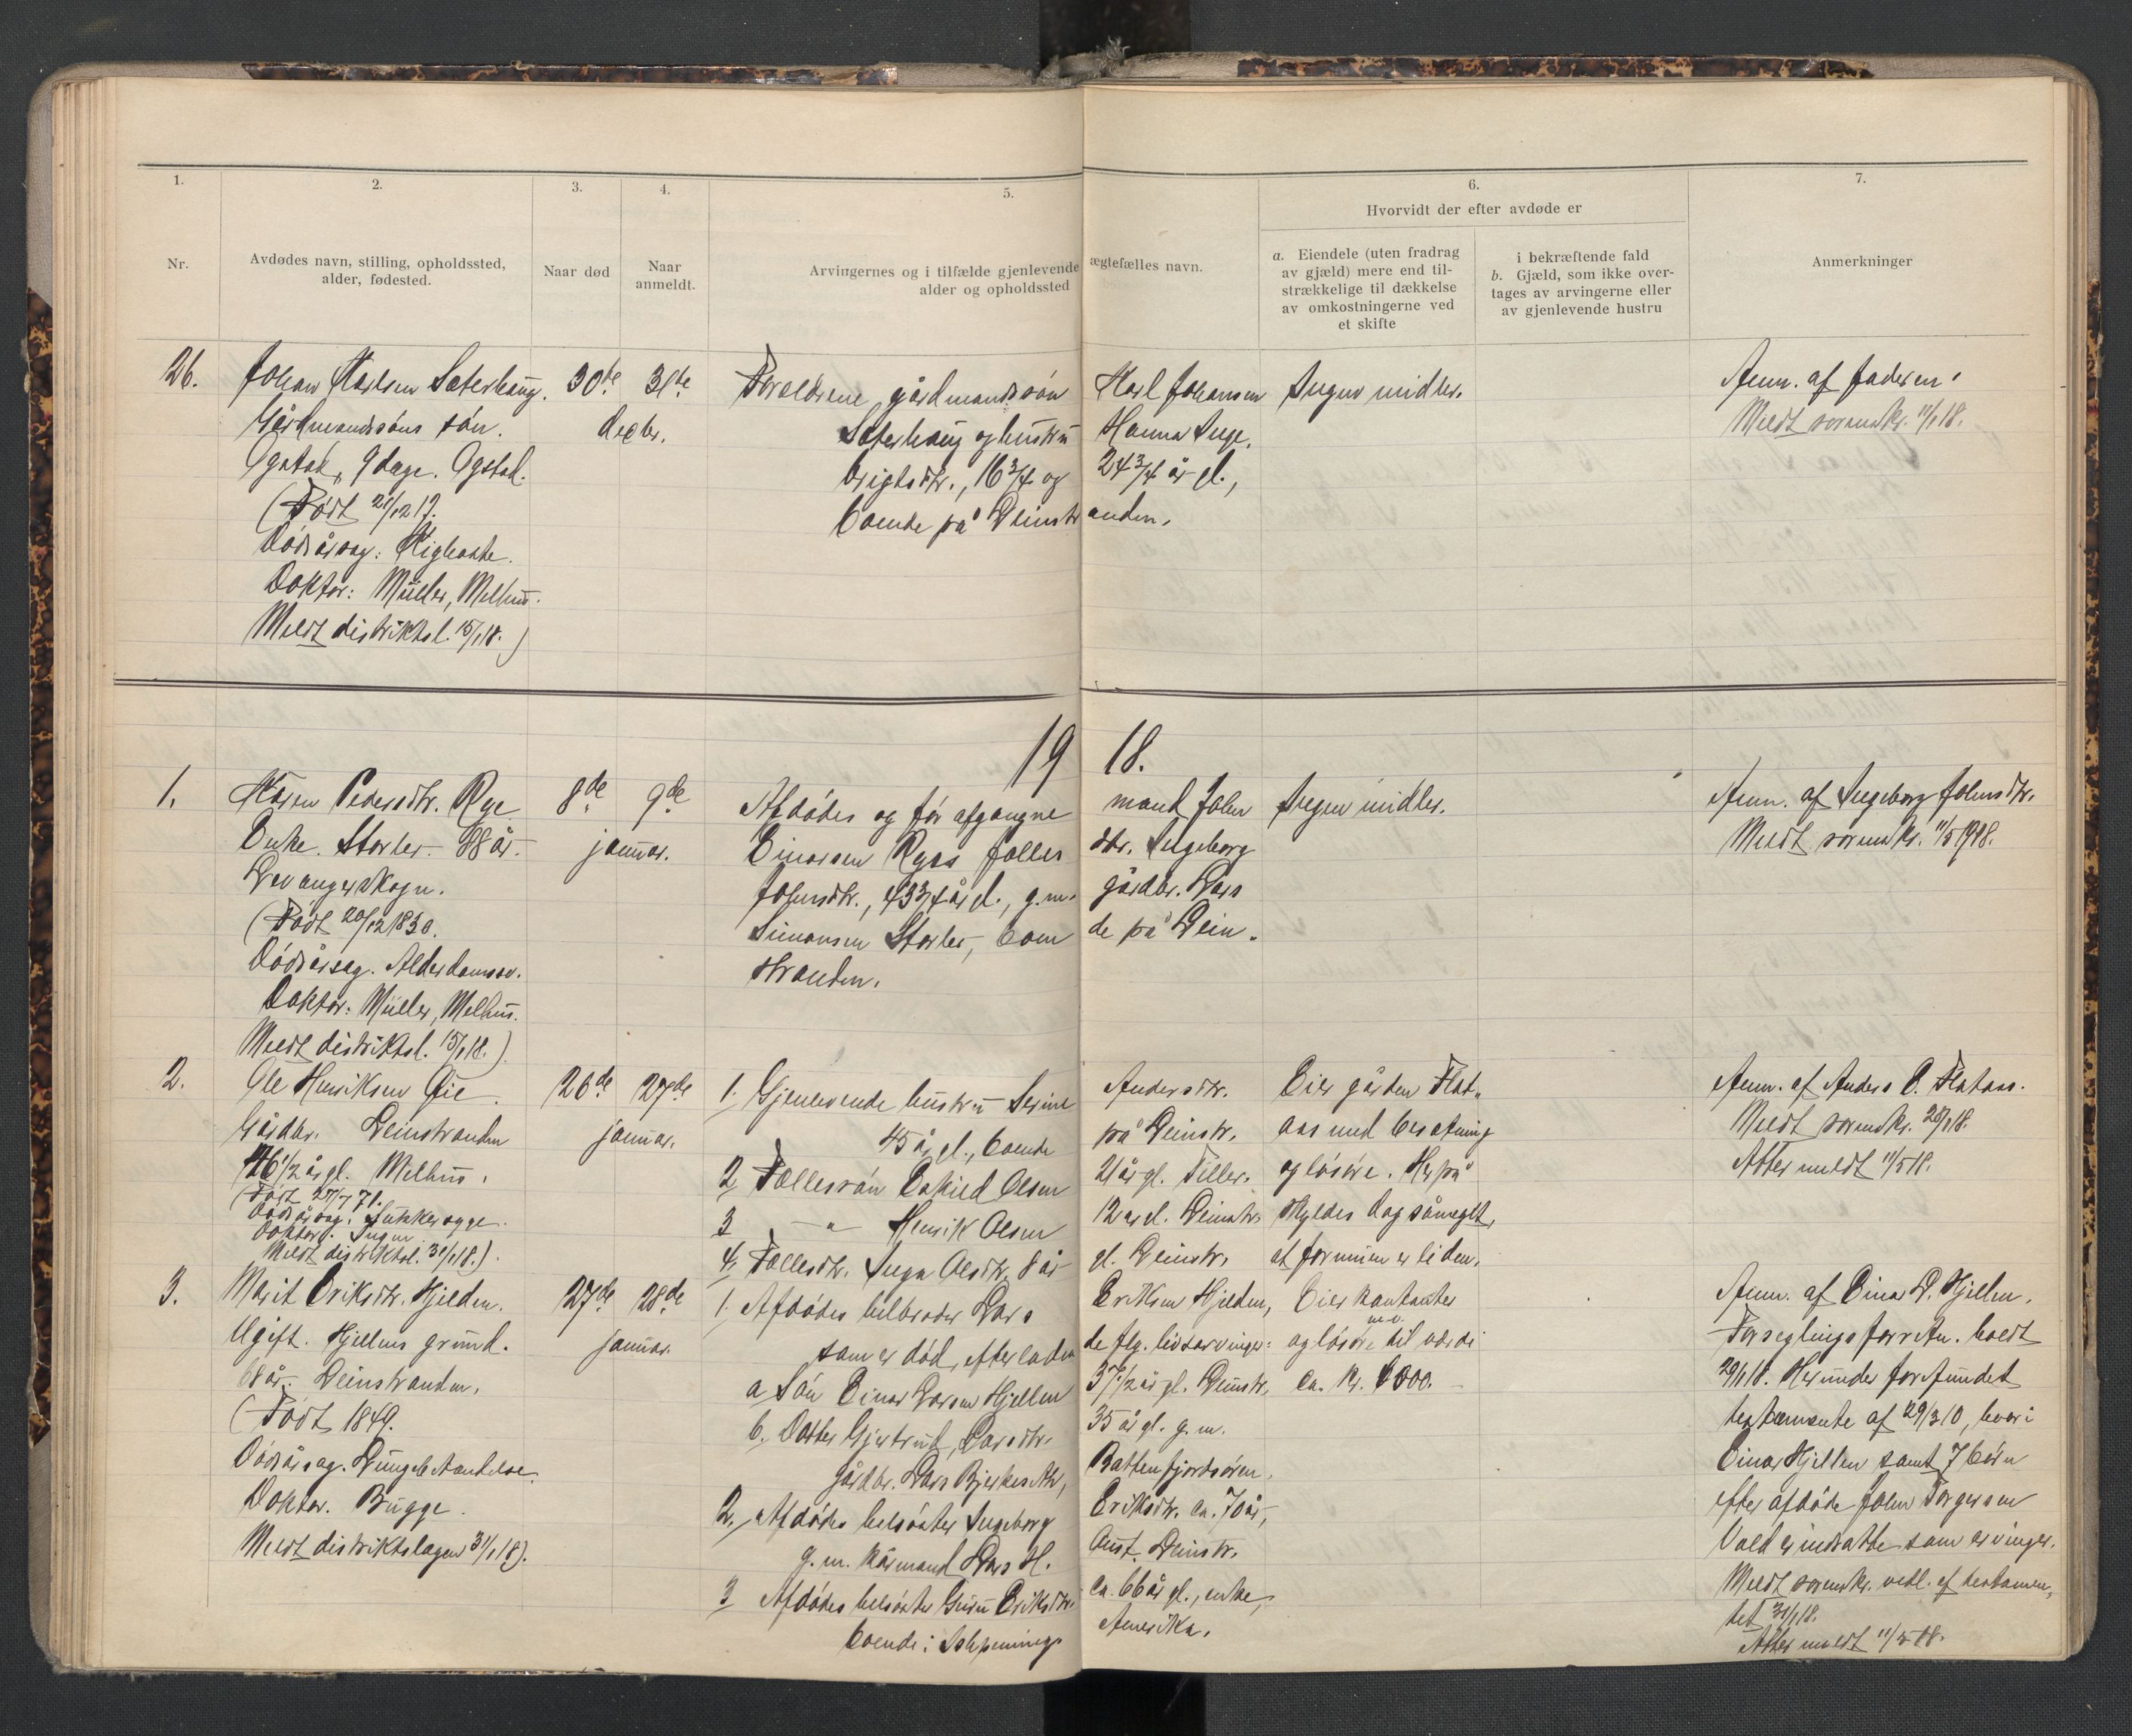 1.
2.
3.
4.
5.
6.
7.
Hvorvidt der efter avdøde er
Nr.
Avdødes navn, stilling, opholdssted,
alder, fødested.
Naar død
Naar
anmeldt.
Arvingernes og i tilfælde gjenlevende ægtefælles navn.
alder og opholdssted
a. Eiendele (uten fradrag
av gjæld) mere end til-
strækkelige til dækkelse
av omkostningerne ved
et skifte
i bekræftende fald
b. Gjæld, som ikke over-
tages av arvingerne eller
av gjenlevende hustru
Anmerkninger
26.
Johan Karlsen Saterhaug.
Gårdmandssøns søn.
Ogstad, 9 dage. Ogstad.
(Født 21/12 17.
Dødsårsag:
Doktor: Müller, Melhus.
Meldt distriktsl. 15/1 18.)
30te 31te
decbr.
Forældrene gårdmandssøn Karl Johansen
Saterhaug og hustru Hanna Inge.
brigtsdtr., 16 3/4 og 24 3/4 år gl.,
boende på Leinstranden.
Ingen midler.
Anm. af faderen.
Meldt sorenskr. 11/1 18.
1918.
1.
Karen Pedersdtr. Rye
Enke. Storler. 88 år.
Levanger skogn.
(Født 20/12 1830.
Dødsårsag. Alderdomssv.
Doktor: Müller, Melhus.
Meldt distriktsl. 15/1 18.)
8de 9de
januar.
Afdødes og før afgangne mand John
Einarsen Ryes fælles dtr. Ingeborg
Johnsdtr., 43 3/4 år gl., g.m. gårdbr. Lars
Simonsen Storler, boende på Lein-
stranden.
Ingen midler.
Anm. af Ingeborg Johnsdtr.
Meldt sorenskr. 11/5 1918.
2.
Ole Henriksen Øie.
Gårdbr. Leinstranden
46 1/2 år gl. Melhus.
(Født 27/7 71.
Dødsårsag: Sukkersyge.
Doktor: Ingen
Meldt distriktsl. 31/1 18.)
26de 27de
januar.
1. Gjenlevende hustru Serine Andersdtr.
45 år gl., boende på Leinstr.
2. Fællessøn Eskild Olsen 21 år gl. Tiller.
3 — " — Henrik Olsen 12 år gl. Leinstr.
4. Fællesdtr. Inga Olsdtr. 8 år gl. Leinstr.
Eier gården Flat-
aas med besætning
og løsøre. Herpå
skyldes dog såmeget,
at formuen er liden.
Anm. af Anders O. Flataas.
Meldt sorenskr. 28/1 18.
Atter meldt 11/5 18.
3.
Marit Eriksdtr. Hjelden.
Ugift. Hjellens grund.
68 år. Leinstranden.
(Født 1849.
Dødsårsag. Lungebetændelse.
Doktor. Bugge.
Meldt distriktslægen 31/1 18).
27de 28de
januar.
1. Afdødes helbroder Lars Eriksen Hjelden,
som er død, efterladende flg. livsarvinger:
a Søn Einar Larsen Hjellen 37 1/2 år gl. Leinstr.
b. Datter Gjertrud Larsdtr. 35 år gl. g.m.
gårdbr. Lars Bjerkeseth, Battenfjordsøren.
2. Afdødes helsøster Ingeborg Eriksdtr. ca. 70 år,
g.m. kårmand Lars H. Aust. Leinstr.
3 Afdødes helsøster Guru Eriksdtr. ca. 66 år gl., enke,
boende i Ishpeming, Amerika.
Eier kontanter
m.v.
og løsøre til værdi
ca. kr. 1000.
Anm. af Einar L. Hjellen.
Forseglingsforretn. holdt
29/1 18. Herunder forefundet
testamente af 29/3 10, hvori
Einar Hjellen samt 7 børn
efter afdøde John Torgersen
Vold er indsatte som arvinger.
Meldt sorenskr. vedl. af testamen-
tet 31/1 18.
Atter meldt 11/5 18.